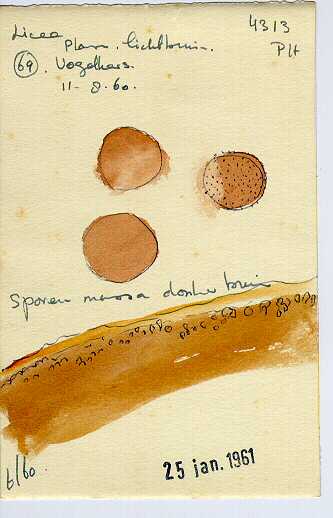 Licea
4313
PH
Plasm. lichtbruin.
69. Vogelkers.
11-8.60.
Sporen massa donker bruin
6/60.
25 jan. 1961